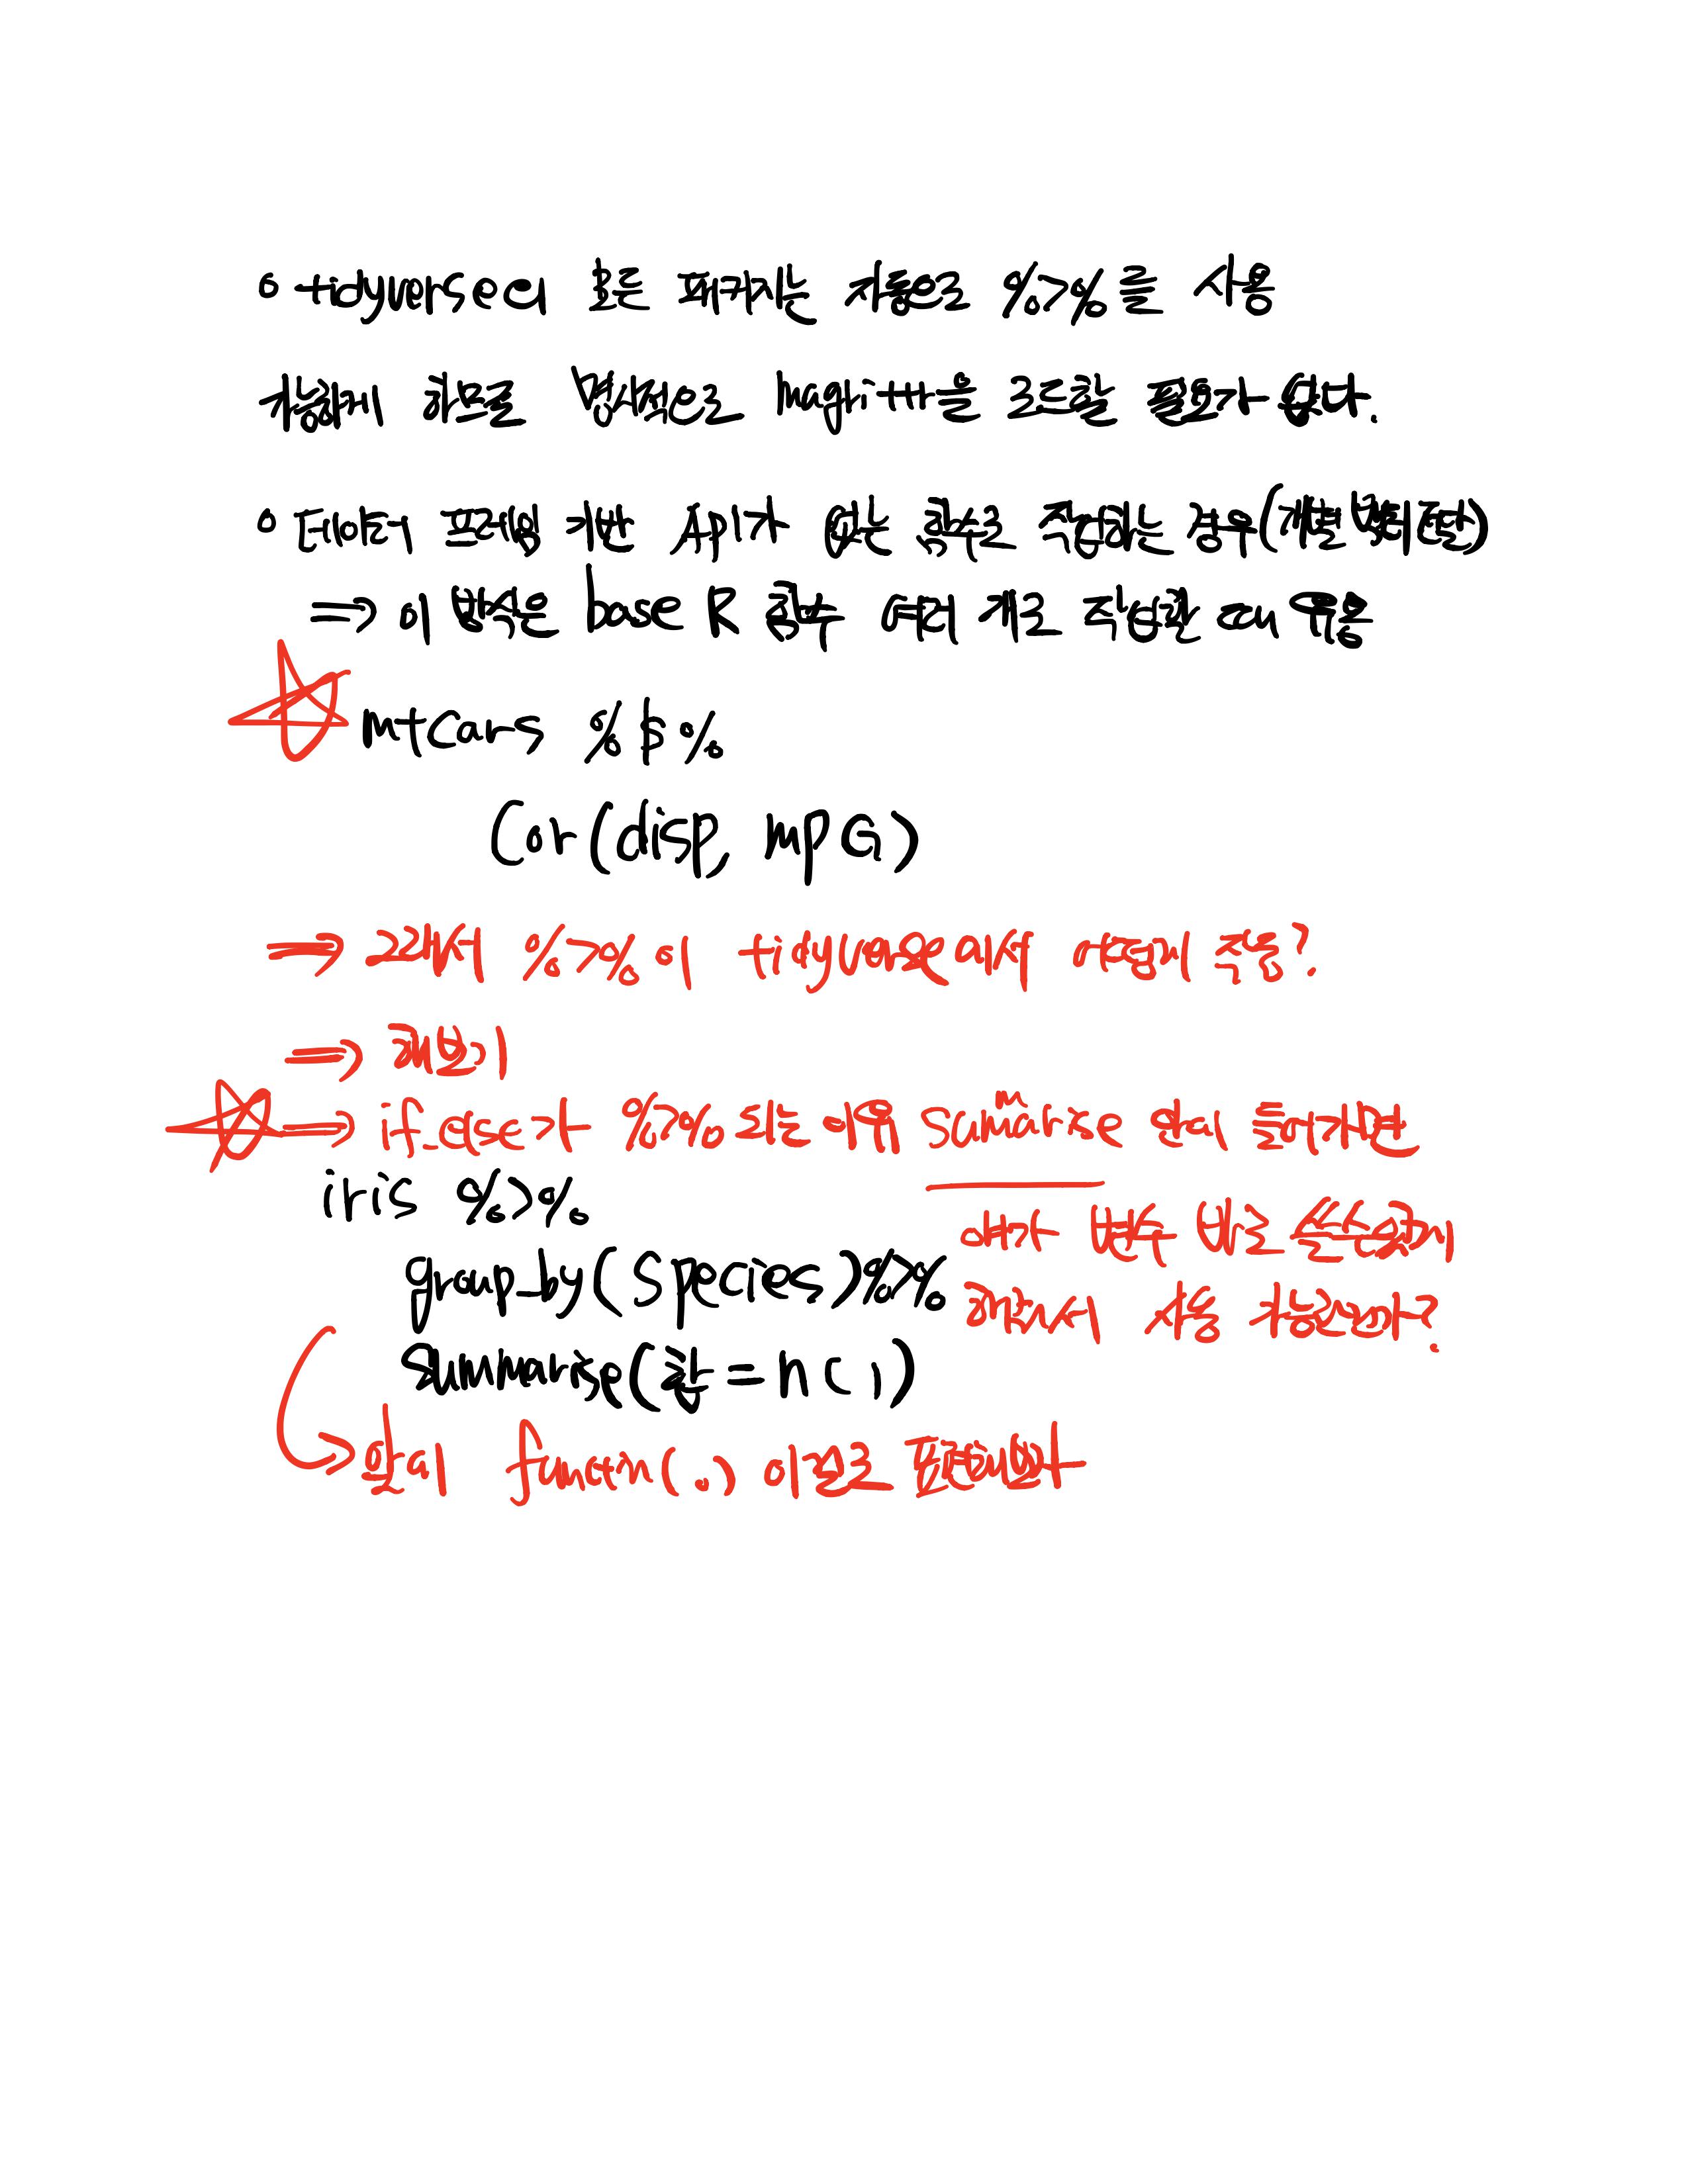 • tidyverse의 모든 패키지는 자동으로 %>%를 사용
가능하게 하므로 명시적으로 magrittr을 로드할 필요가 없다.
• 데이터 프레임 기반 API가 없는 함수로 작업하는 경우(개별 벡터 전달)
⇒ 이 방식은 base R 함수 여러 개로 작업할 때 유용
☆ mtcars %$%
Cor(disp, mpG)
⇒ 그래서 %>%이 tidyverse에서 어떻게 작동?
⇒ 해보기
☆⇒ if_else가 %>% 되는 이유 summarise 안에 들어가면
iris %>%
얘가 변수 바로 쓸 수 있게
group_by(Species)%>%
해줘서 사용 가능한건가?
summarise(한=n())
앞에 function(.) 이걸로 표현해보자